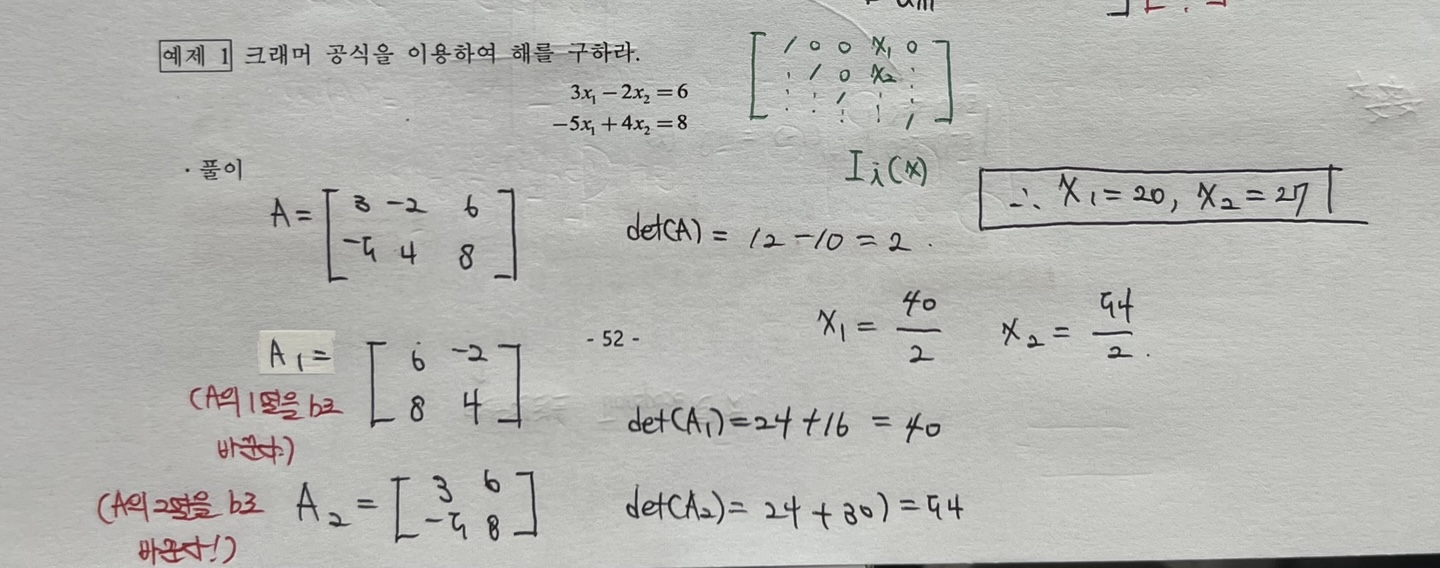 예제 1 크래머 공식을 이용하여 해를 구하라.
3x₁ − 2x₂ = 6
−5x₁ + 4x₂ = 8
1 0 0 x₁ 0
: 1 0 x₂ :
Iᵢ(x)
· 풀이
∴ x₁ = 20, x₂ = 27
A = [3 -2 6
-5 4 8]
det(A) = 12 - 10 = 2.
x₁ = 40/2 x₂ = 54/2.
- 52 -
A₁ = [6 -2
8 4]
(A의 1열을 b로
바꾼다)
det(A₁) = 24 + 16 = 40
A₂ = [3 6
-5 8]
(A의 2열을 b로
바꾼다!)
det(A₂) = 24 + 30) = 54